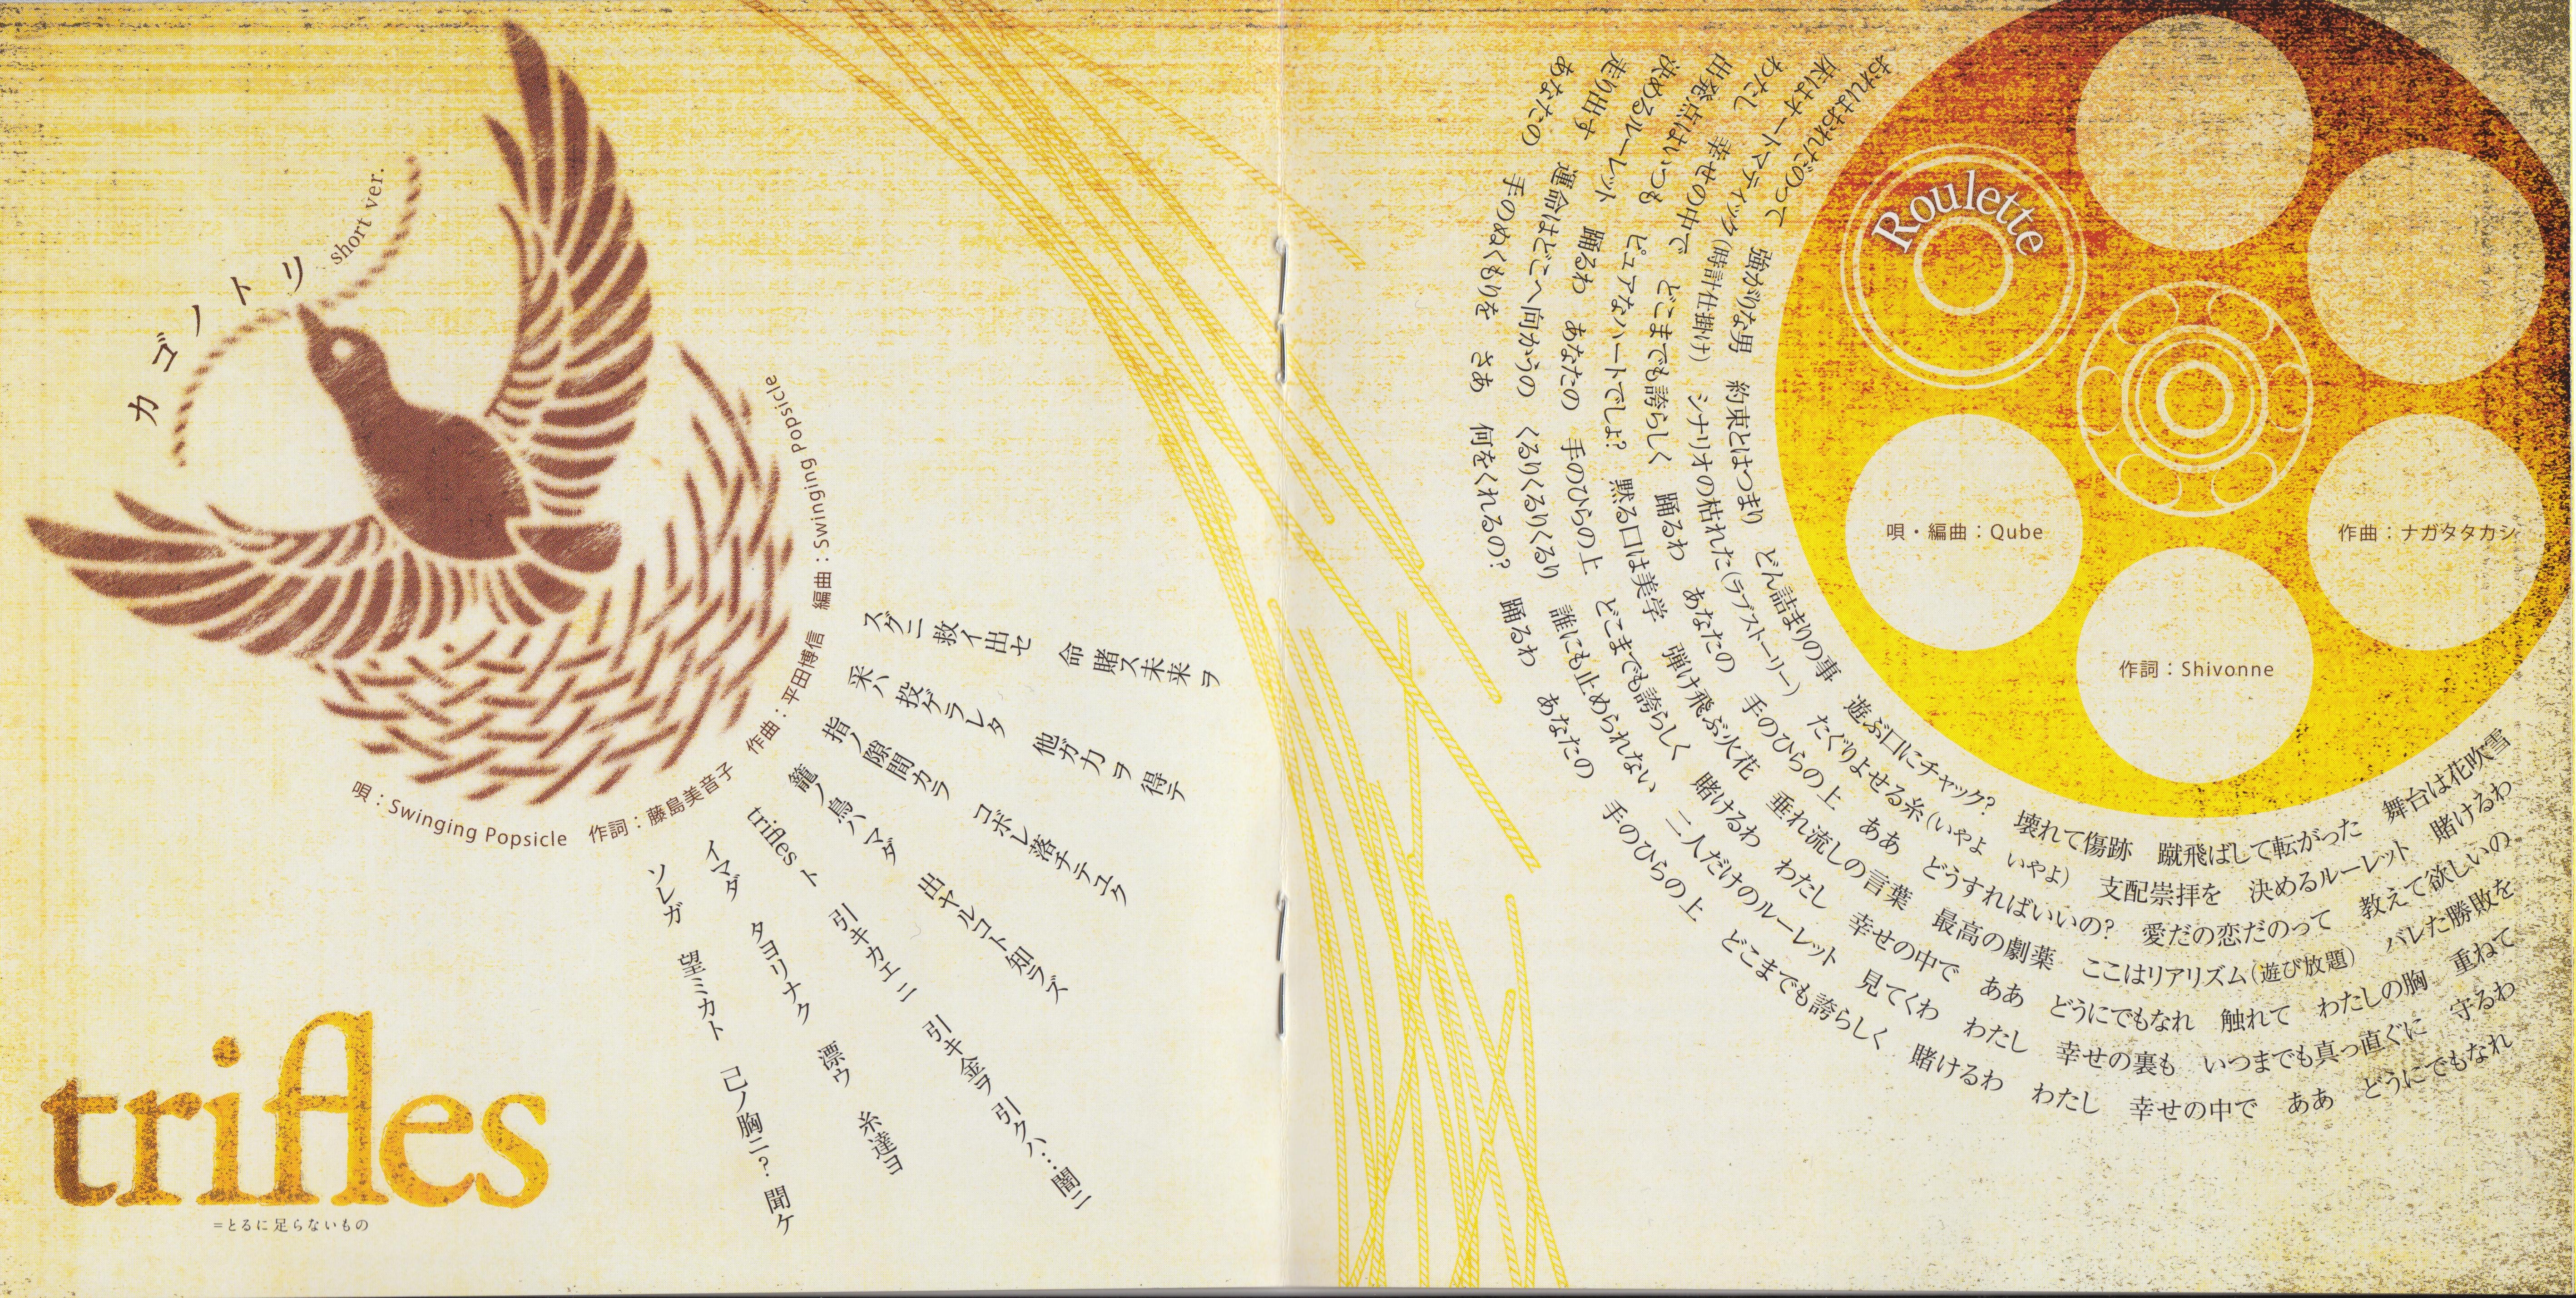 カゴノトリ short ver.
唄：Swinging Popsicle　作詞：藤島美音子　作曲：平田博信　編曲：Swinging Popsicle
スグニ救イ出セ　命賭ス未来ヲ
采ハ投ゲラレタ　他ガ力ヲ得テ
指ノ隙間カラ　コボレ落チテユク
籠ノ鳥ハマダ　出ヤルコト知ラズ
triflesト　引キカエニ　引キ金ヲ引クハ…闇ニ
イマダ　タヨリナク　漂ウ　糸達ヨ
ソレガ　望ミカト　己ノ胸ニ？聞ケ
trifles
=とるに足らないもの
Roulette
唄・編曲：Qube
作詞：Shivonne
作曲：ナガタタカシ
おれはおれだのって　強がりな男　約束とはつまり　どん詰まりの事　遊ぶ口にチャック？　壊れて傷跡　蹴飛ばして転がった　舞台は花吹雪
床はオートマティック(時計仕掛け)　シナリオの枯れた(ラブストーリー)　たぐりよせる糸(いやよ　いやよ)　支配崇拝を　決めるルーレット　賭けるわ
わたし　幸せの中で　どこまでも誇らしく　踊るわ　あなたの　手のひらの上　ああ　どうすればいいの？　愛だの恋だのって　教えて欲しいの
出発点はいつも　ピュアなハートでしょ？　黙る口は美学　弾け飛ぶ火花　垂れ流しの言葉　最高の劇薬　ここはリアリズム(遊び放題)　バレた勝敗を
決めるルーレット　踊るわ　あなたの　手のひらの上　どこまでも誇らしく　賭けるわ　わたし　幸せの中で　ああ　どうにでもなれ　触れて　わたしの胸　重ねて
走り出す　運命はどこへ向かうの　くるりくるりくるり　誰にも止められない　二人だけのルーレット　見てくわ　わたし　幸せの裏も　いつまでも真っ直ぐに　守るわ
あなたの　手のぬくもりを　さあ　何をくれるの？　踊るわ　あなたの　手のひらの上　どこまでも誇らしく　賭けるわ　わたし　幸せの中で　ああ　どうにでもなれ